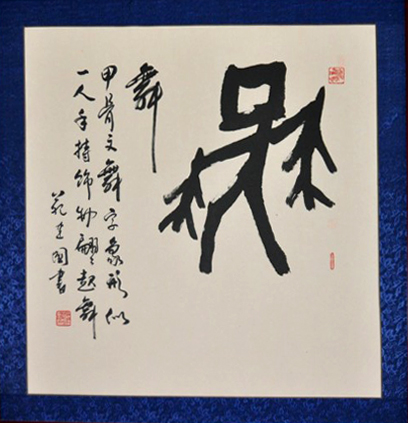 舞
舞
甲骨文舞字象形似
一人手持饰物翩翩起舞
国书